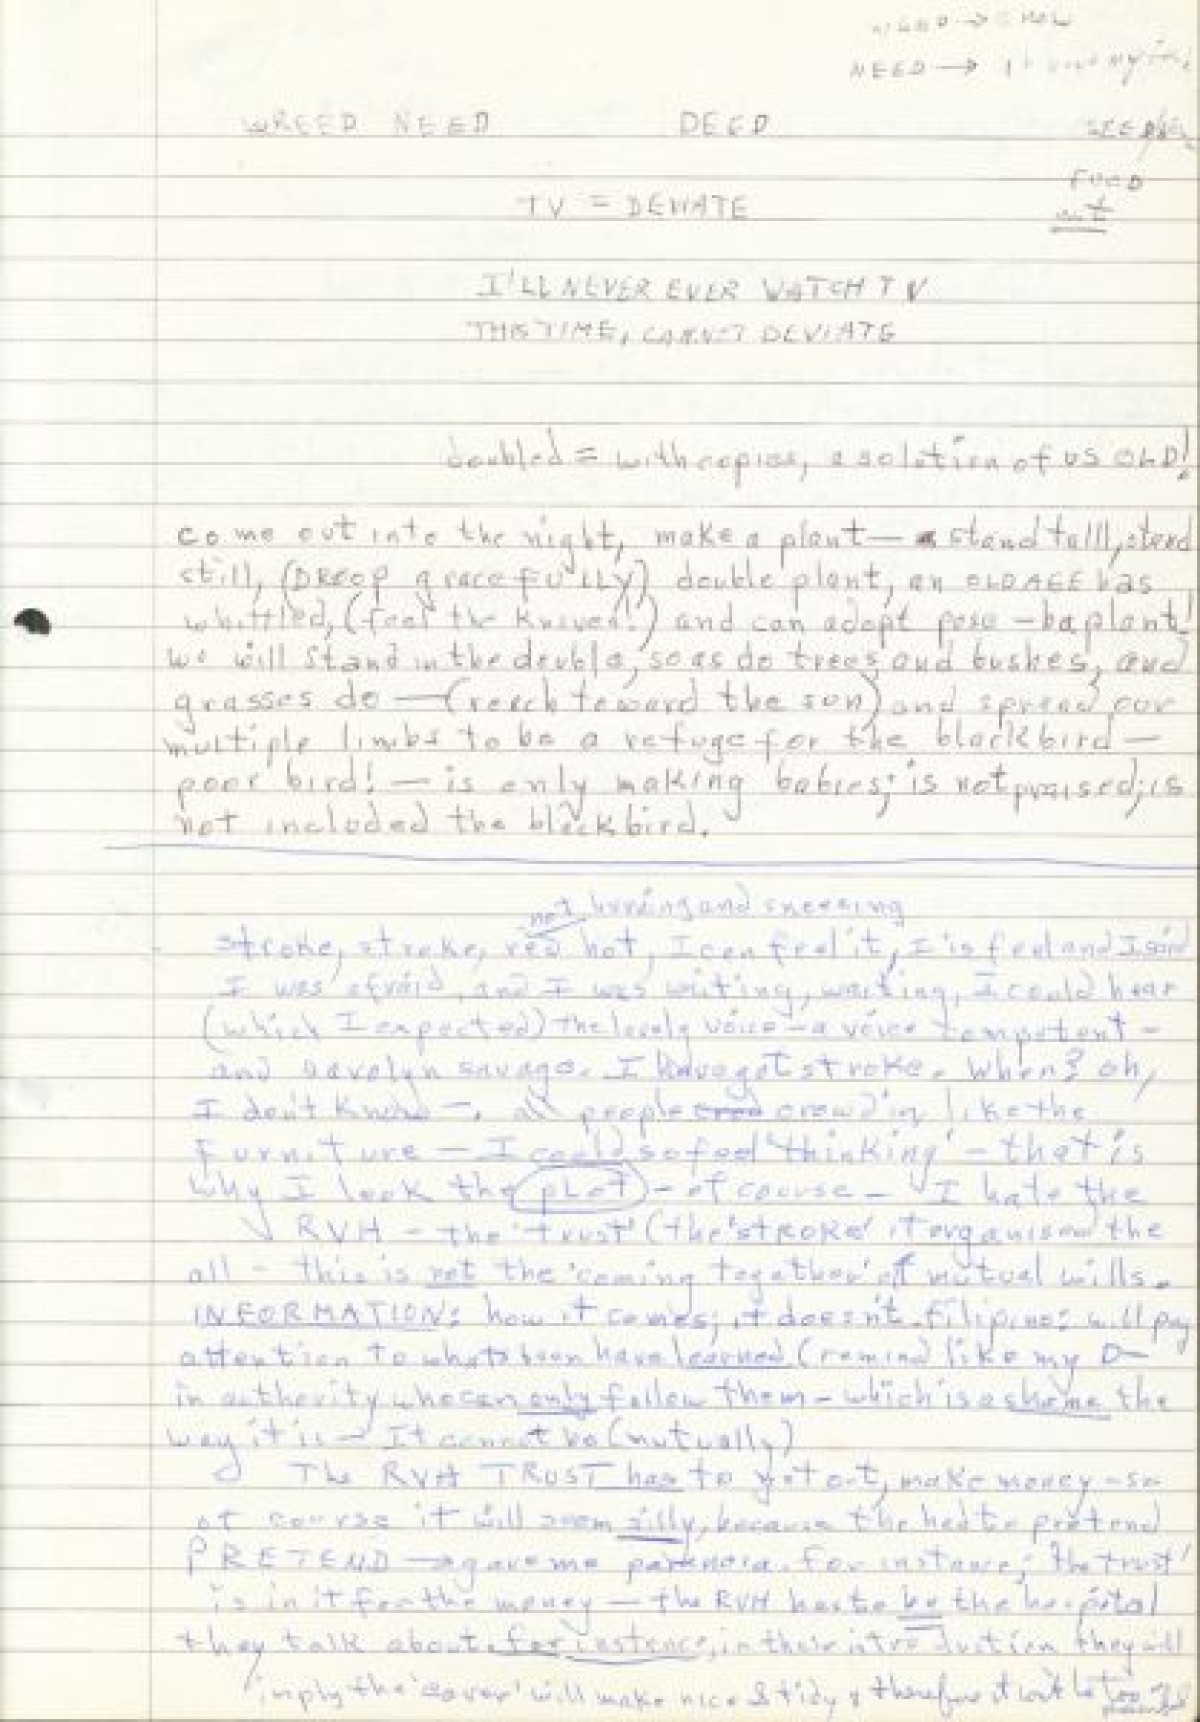 NEED →
WREED NEED DEED
FOOD
out
TV = DEWATE
I'LL NEVER EVER WATCH TV
THIS TIME, CANNOT DEVIATE
doubled = with copies, a solution of US OLD!
come out into the night, make a plant — stand tall, stand
still, (DROOP gracefully) double plant, an OLDAGE has
whittled, (feel the knives!) and can adopt pose — be plant!
we will stand in the double, so as do trees, and bushes, and
grasses do — (reach toward the sun) and spread our
multiple limbs to be a refuge for the blackbird —
poor bird! — is only making babies; is not praised; is
not included the blackbird.
not burning and sneezing
stroke, stroke, red hot, I can feel it, I is feel and I said
I was afraid, and I was waiting, waiting, I could hear
(which I expected) the lovely voice — a voice competent —
and savage. I have got stroke. When? oh,
I don't know —. all people crowding like the
furniture — I could so feel 'thinking' — that is
why I look the plot — of course — I hate the
RVH — the 'trust' (the 'stroke' it organised the
all — this is not the 'coming together' of mutual wills.
INFORMATION: how it comes; it doesn't. filipino: will pay
attention to whats been have learned (remind like my
in authority who can only follow them — which is a shame the
way it is — It cannot be (mutually)
The RVH TRUST has to get out, make money — so
of course it will seem silly, because the had to pretend
PRETEND — a gave me paranoia. For instance; the trust'
is in it for the money — the RVH has to be the hospital
they talk about. for instance, in there introduction they will
imply the 'cover' will make nice & tidy & therefore it